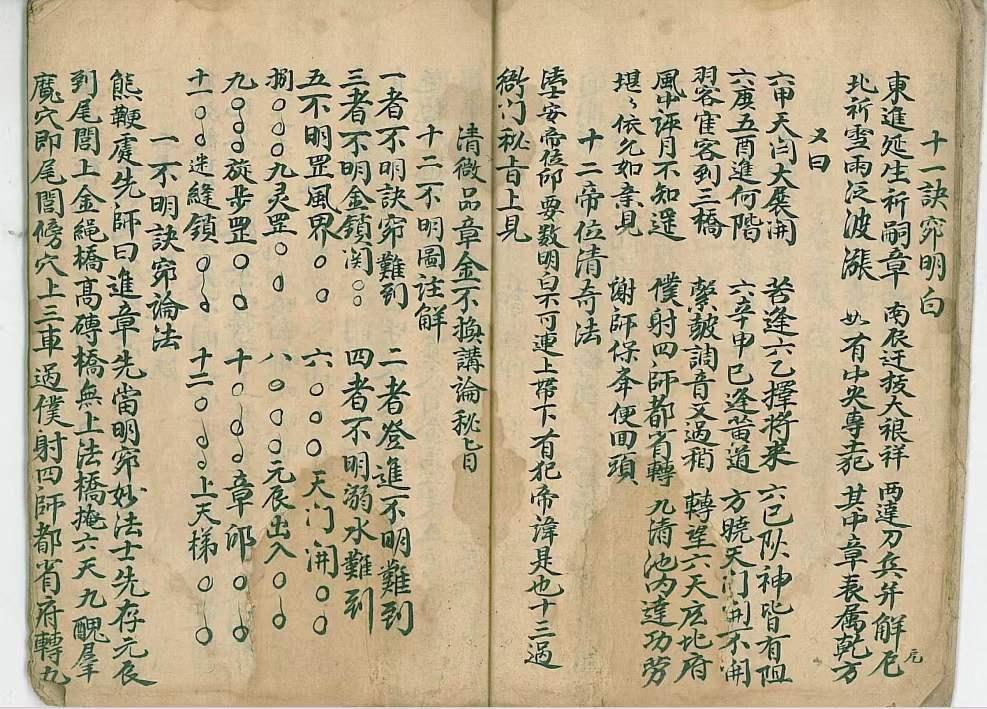 十一訣窍明白
東進延生祈嗣章 南辰迂拔大祯祥 西達刀兵并解厄
北祈雪雨泛波漲 如有中央專主犯 其中章表属乾方
又曰
六甲天门大展開 若逢六乙擇将来 六巳队神皆有阻
六庚五酉進何階 六辛申巳逢黄道 方曉天门開不開
羽客寉客到三橋 繫皷調音又過稍 轉望六天庄北府
風中評月不知遥 僕射四師都省轉 九清池内達功劳
堪〻依允如亲見 謝師保奉便回頭
十二帝位清奇法
墬安帝位卯要数明白不可連上帶下有犯帝諱是也十三過
衙门秘旨上見
清微品章金不换講論秘旨
十二不明圖註解
一者不明訣窍難到 二者登進不明難到
三者不明金鎖関○○ 四者不明溺水難到
五不明罡風界○○ 六○○○天门開○○
捌○○○九灵罡○○ 八○○○○元辰出入○○
九○○○旋步罡○○ 十○○○○章卯○○
十一○○迷縫鎖○○○ 十二○○○○上天梯○○
一不明訣窍論法
熊鞭處先師曰進章先當明窍妙法士先存元辰
到尾閭上金繩橋髙磚橋無上法橋掩六天九醜羣
魔穴即尾閭傍穴上三車過僕射四師都省府轉九